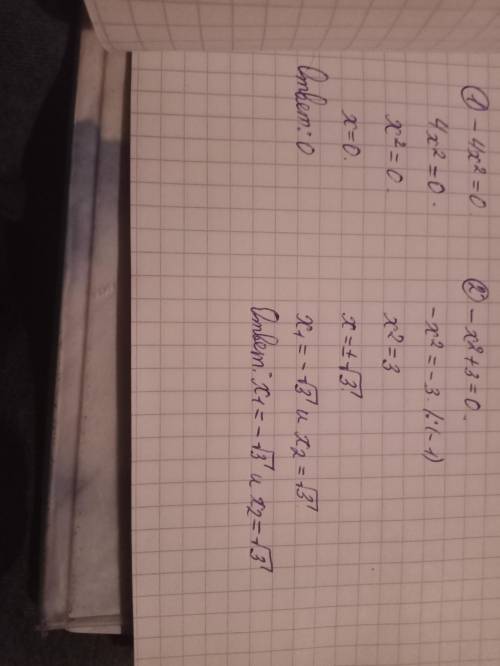 ① - 4x² = 0.
4x² = 0.
x² = 0.
x = 0.
Ответ: 0
② - x² + 3 = 0.
- x² = - 3 |:(-1)
x² = 3
x = ± √3
x₁ = - √3 и x₂ = √3
Ответ: x₁ = - √3 и x₂ = √3